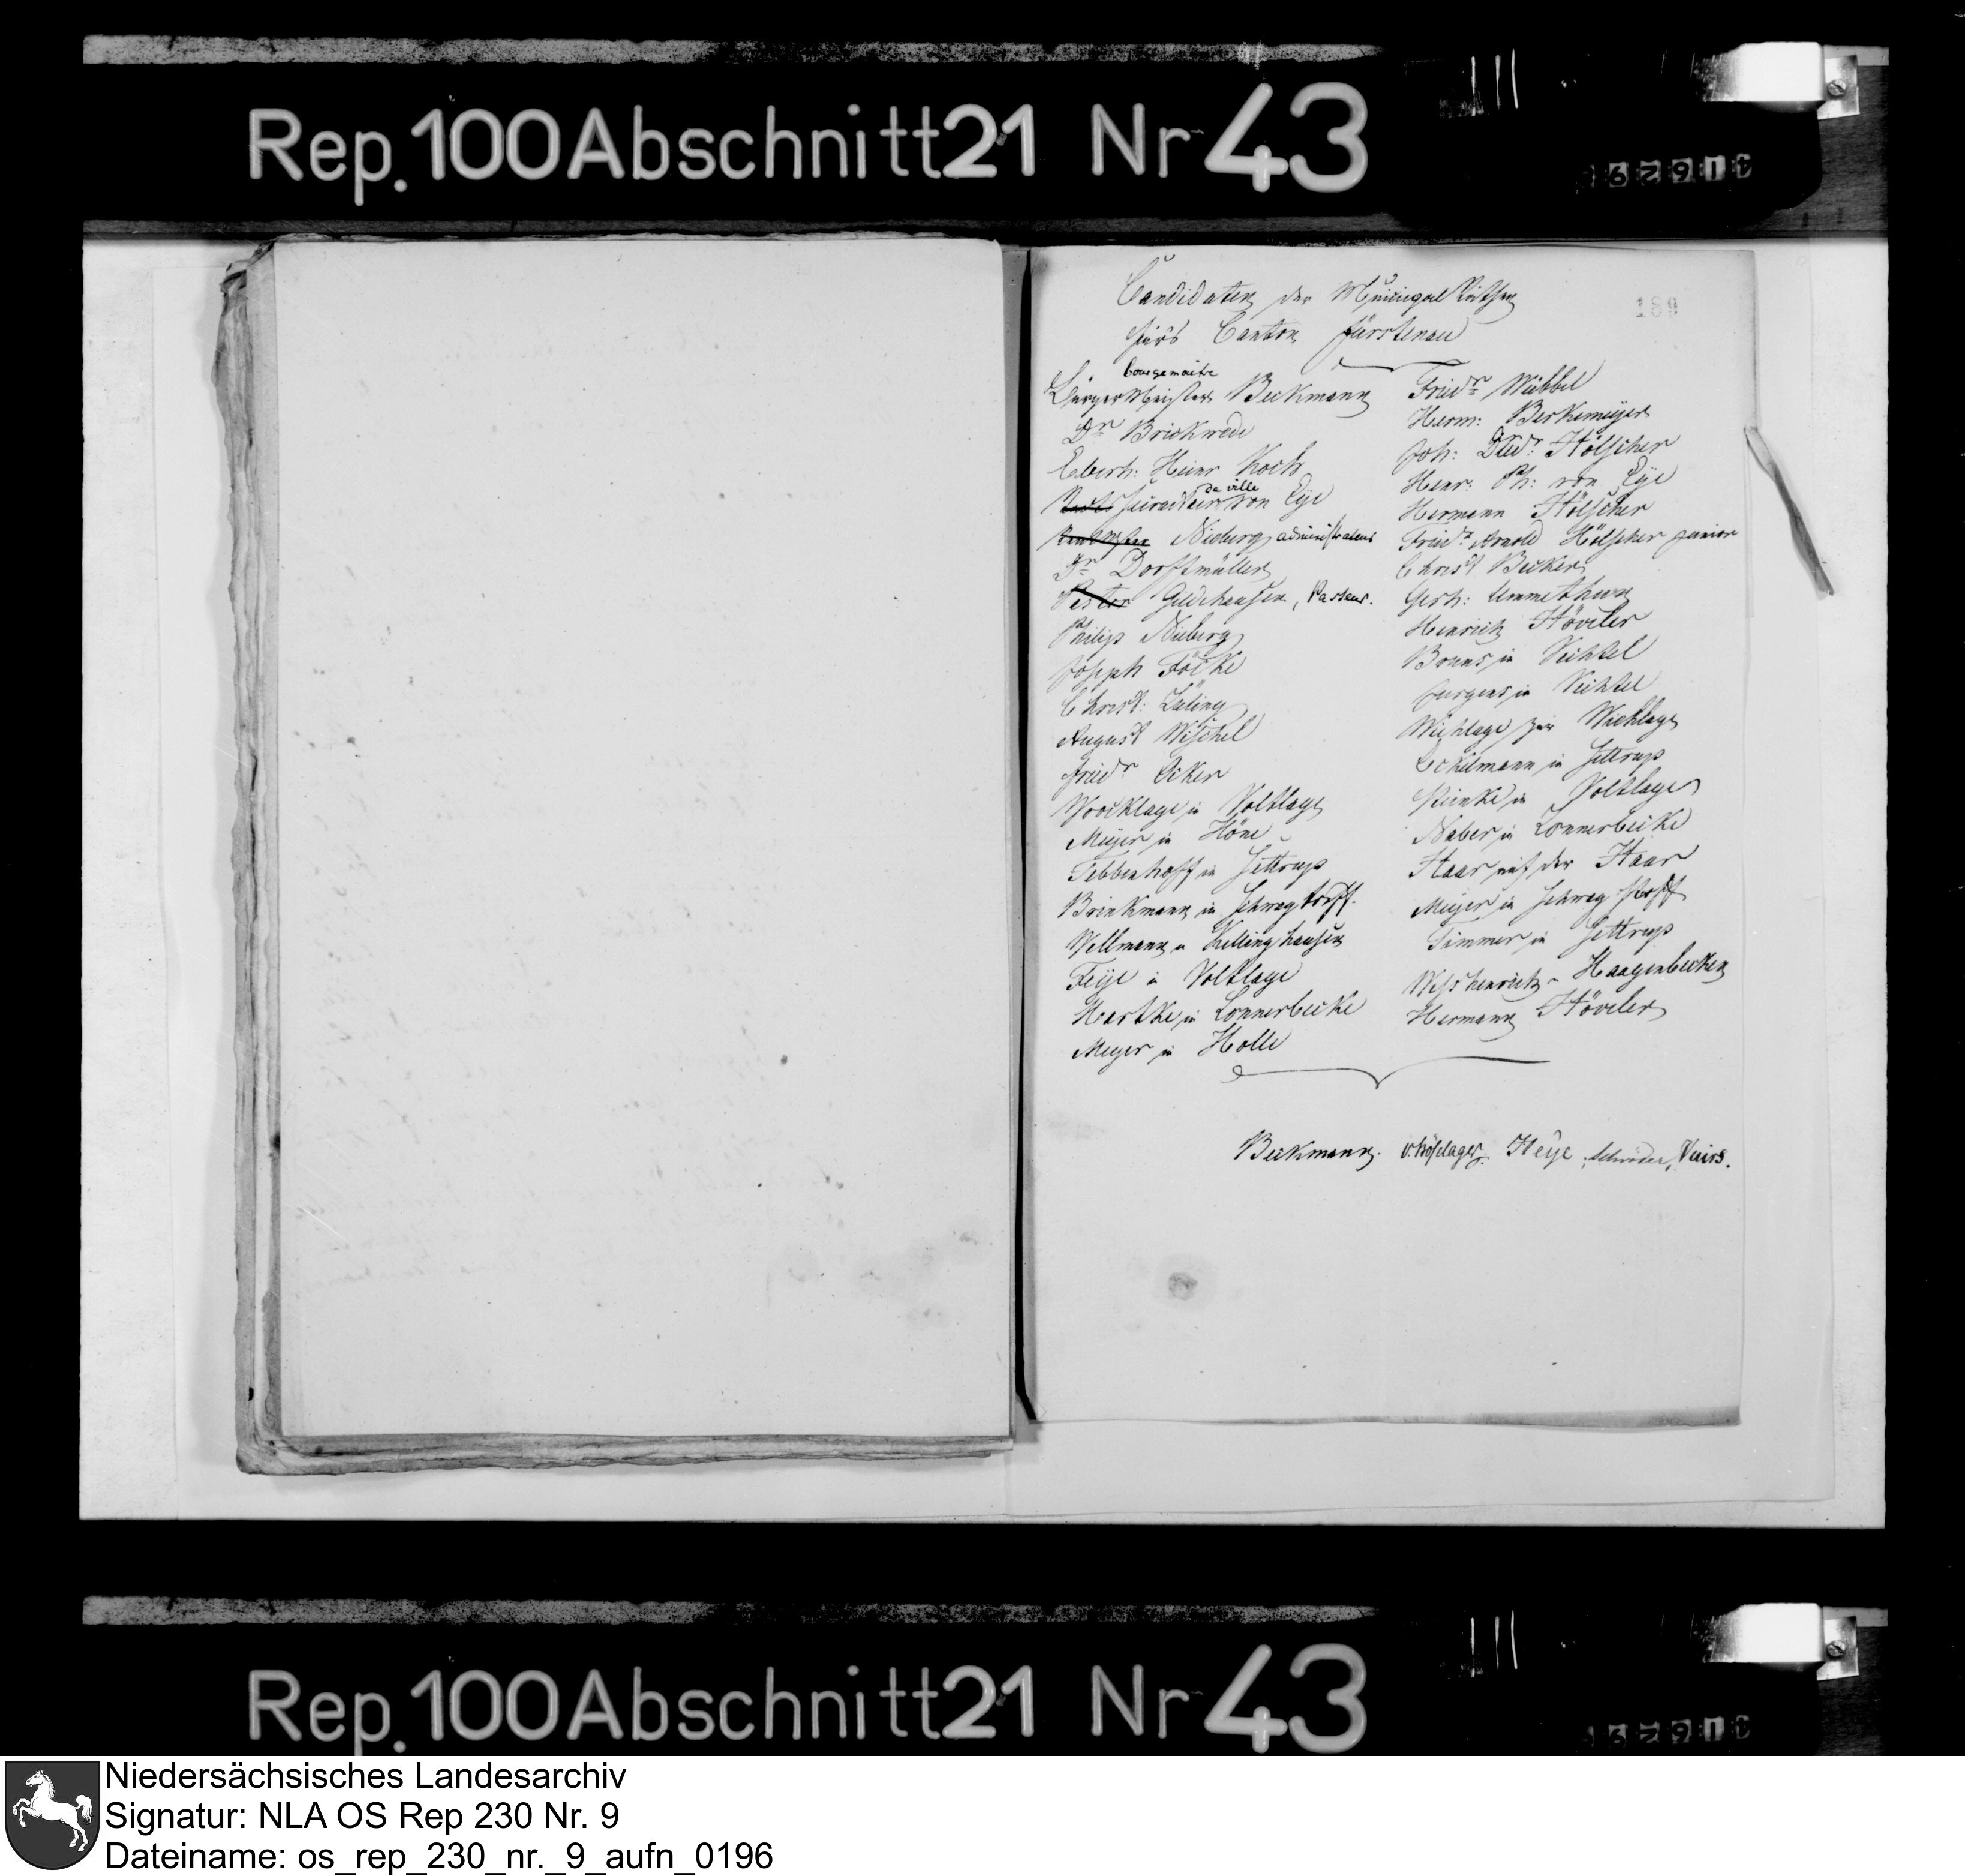 Rep. 100 Abschnitt 21 Nr 43
189
Candidaten der Municipal Räthe
fürs Canton Fürstenau
bourgemaitre
Bürgermeister Beckmann
Dr Brickwede
Eberh: Heinr Koch
de ville
von Eye
Nieberg administrateur
Dr Dorffmüller
Pastor Gildehausen, Pasteur.
Philip Nieberg
Joseph Föcke
Christ: Lüling
August Wischel
Friedr Eiker
Woocklage in Voltlage
Meyer in Höne
Tebbenhoff in Settrup
Brinkmann in Schwagstorff.
Wellmann in Hellinghausen
Feye in Voltlage
Hartke in Lonnerbecke
Meyer in Holle
Friedr Wübbel
Herm: Berkemeyer
Joh: Died: Hölscher
Henr: Ph: von Eye
Hermann Hölscher
Friedr Arnold Hölscher junior
Christ Becker
Gerh: Ummethun
Henrich Höveler
Bruns in Vechtel
Jurgens in Vechtel
Wichlage zur Wichlage
Eckelmann in Settrup
Reinke in Voltlage
Naber in Lonnerbecke
Haar auf der Haar
Meyer in Schwagstorff
Timmer in Settrup
Haagenbecken
Hermann Höveler
Beckmann. v. Böselager. Heye, Schröder, Veirs.
Rep. 100 Abschnitt 21 Nr 43
Niedersächsisches Landesarchiv
Signatur: NLA OS Rep 230 Nr. 9
Dateiname: os_rep_230_nr._9_aufn_0196